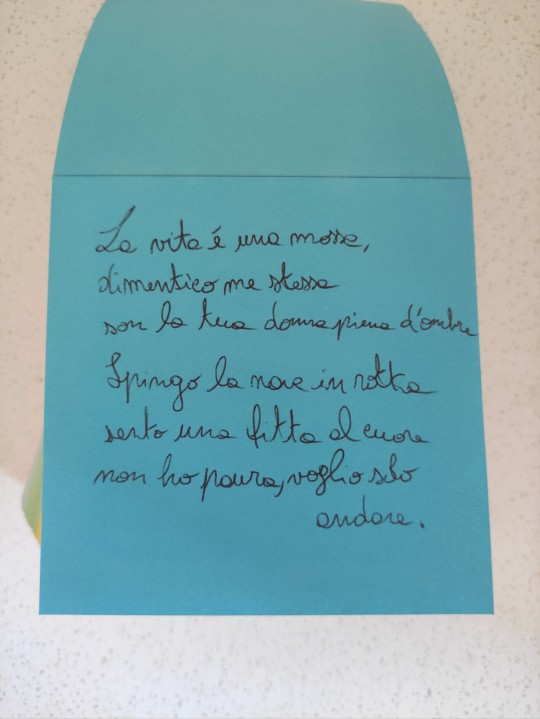 La vita é una mossa,
dimentico me stessa
son la tua donna piena d'ombre
Spingo la nave in rotta
sento una fitta al cuore
non ho paura, voglio solo
andare.